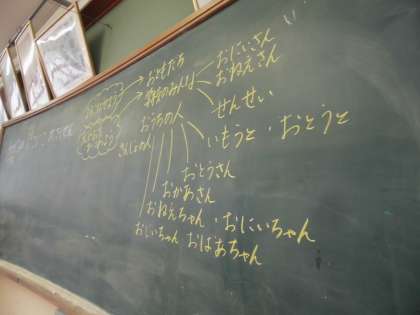 おともだち
学校のみんな
おにいさん
おねえさん
せんせい
おうちの人
いもうと・おとうと
きんじょの人
おとうさん
おかあさん
おねえちゃん・おにいちゃん
おじいちゃん おばあちゃん